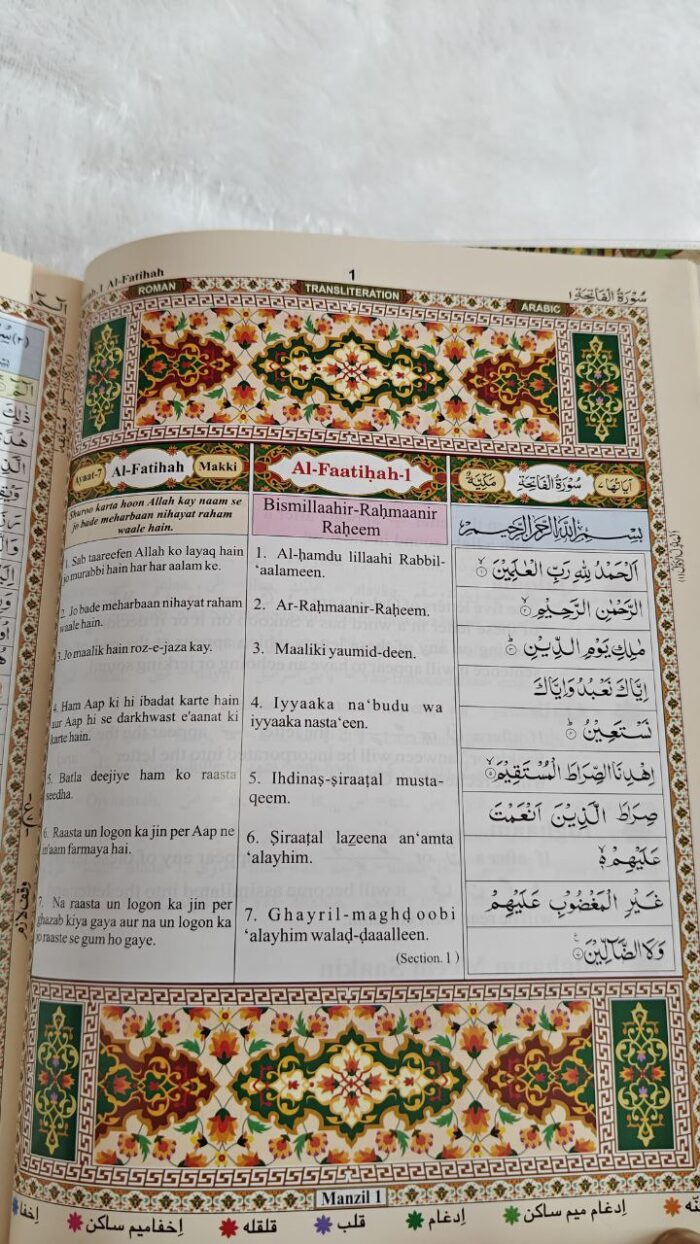 Al-Fatihah
1
سُوْرَةُ الْفَاتِحَة ١
ROMAN
TRANSLITERATION
ARABIC
Ayaat-7 Al-Fatihah Makki
Shuroo karta hoon Allah kay naam se
jo bade meharbaan nihayat raham
waale hain.
1. Sab taareefen Allah ko layaq hain
jo murabbi hain har har aalam ke.
2. Jo bade meharbaan nihayat raham
waale hain.
3. Jo maalik hain roz-e-jaza kay.
4. Ham Aap ki hi ibadat karte hain
aur Aap hi se darkhwast e'aanat ki
karte hain.
5. Batla deejiye ham ko raasta
seedha.
6. Raasta un logon ka jin per Aap ne
in'aam farmaya hai.
7. Na raasta un logon ka jin per
ghazab kiya gaya aur na un logon ka
jo raaste se gum ho gaye.
Al-Faatiḥah-1
Bismillaahir-Raḥmaanir
Raḥeem
1. Al-ḥamdu lillaahi Rabbil-
‘aalameen.
2. Ar-Raḥmaanir-Raḥeem.
3. Maaliki yaumid-deen.
4. Iyyaaka na‘budu wa
iyyaaka nasta‘een.
5. Ihdinaṣ-ṣiraaṭal musta-
qeem.
6. Ṣiraaṭal lazeena an‘amta
‘alayhim.
7. Ghayril-maghḍoobi
‘alayhim walaḍ-ḍaaalleen.
(Section. 1 )
اٰيَاتُهَا ٧ سُوْرَةُ الْفَاتِحَة مَكِّيَّةٌ
بِسْمِ اللّٰهِ الرَّحْمٰنِ الرَّحِيْمِ
اَلْحَمْدُ لِلّٰهِ رَبِّ الْعٰلَمِيْنَ ۙ‏١
الرَّحْمٰنِ الرَّحِيْمِ ۙ‏٢
مٰلِكِ يَوْمِ الدِّيْنِ ؕ‏٣
اِيَّاكَ نَعْبُدُ وَاِيَّاكَ
نَسْتَعِيْنُ ؕ‏٤
اِهْدِنَا الصِّرَاطَ الْمُسْتَقِيْمَ ۙ‏٥
صِرَاطَ الَّذِيْنَ اَنْعَمْتَ
عَلَيْهِمْ ۙ‏٦
غَيْرِ الْمَغْضُوْبِ عَلَيْهِمْ
وَلَا الضَّآلِّيْنَ ٧
Manzil 1
إدغام ميم ساكن
إدغام
قلب
قلقله
إخفاميم ساكن
إخفا